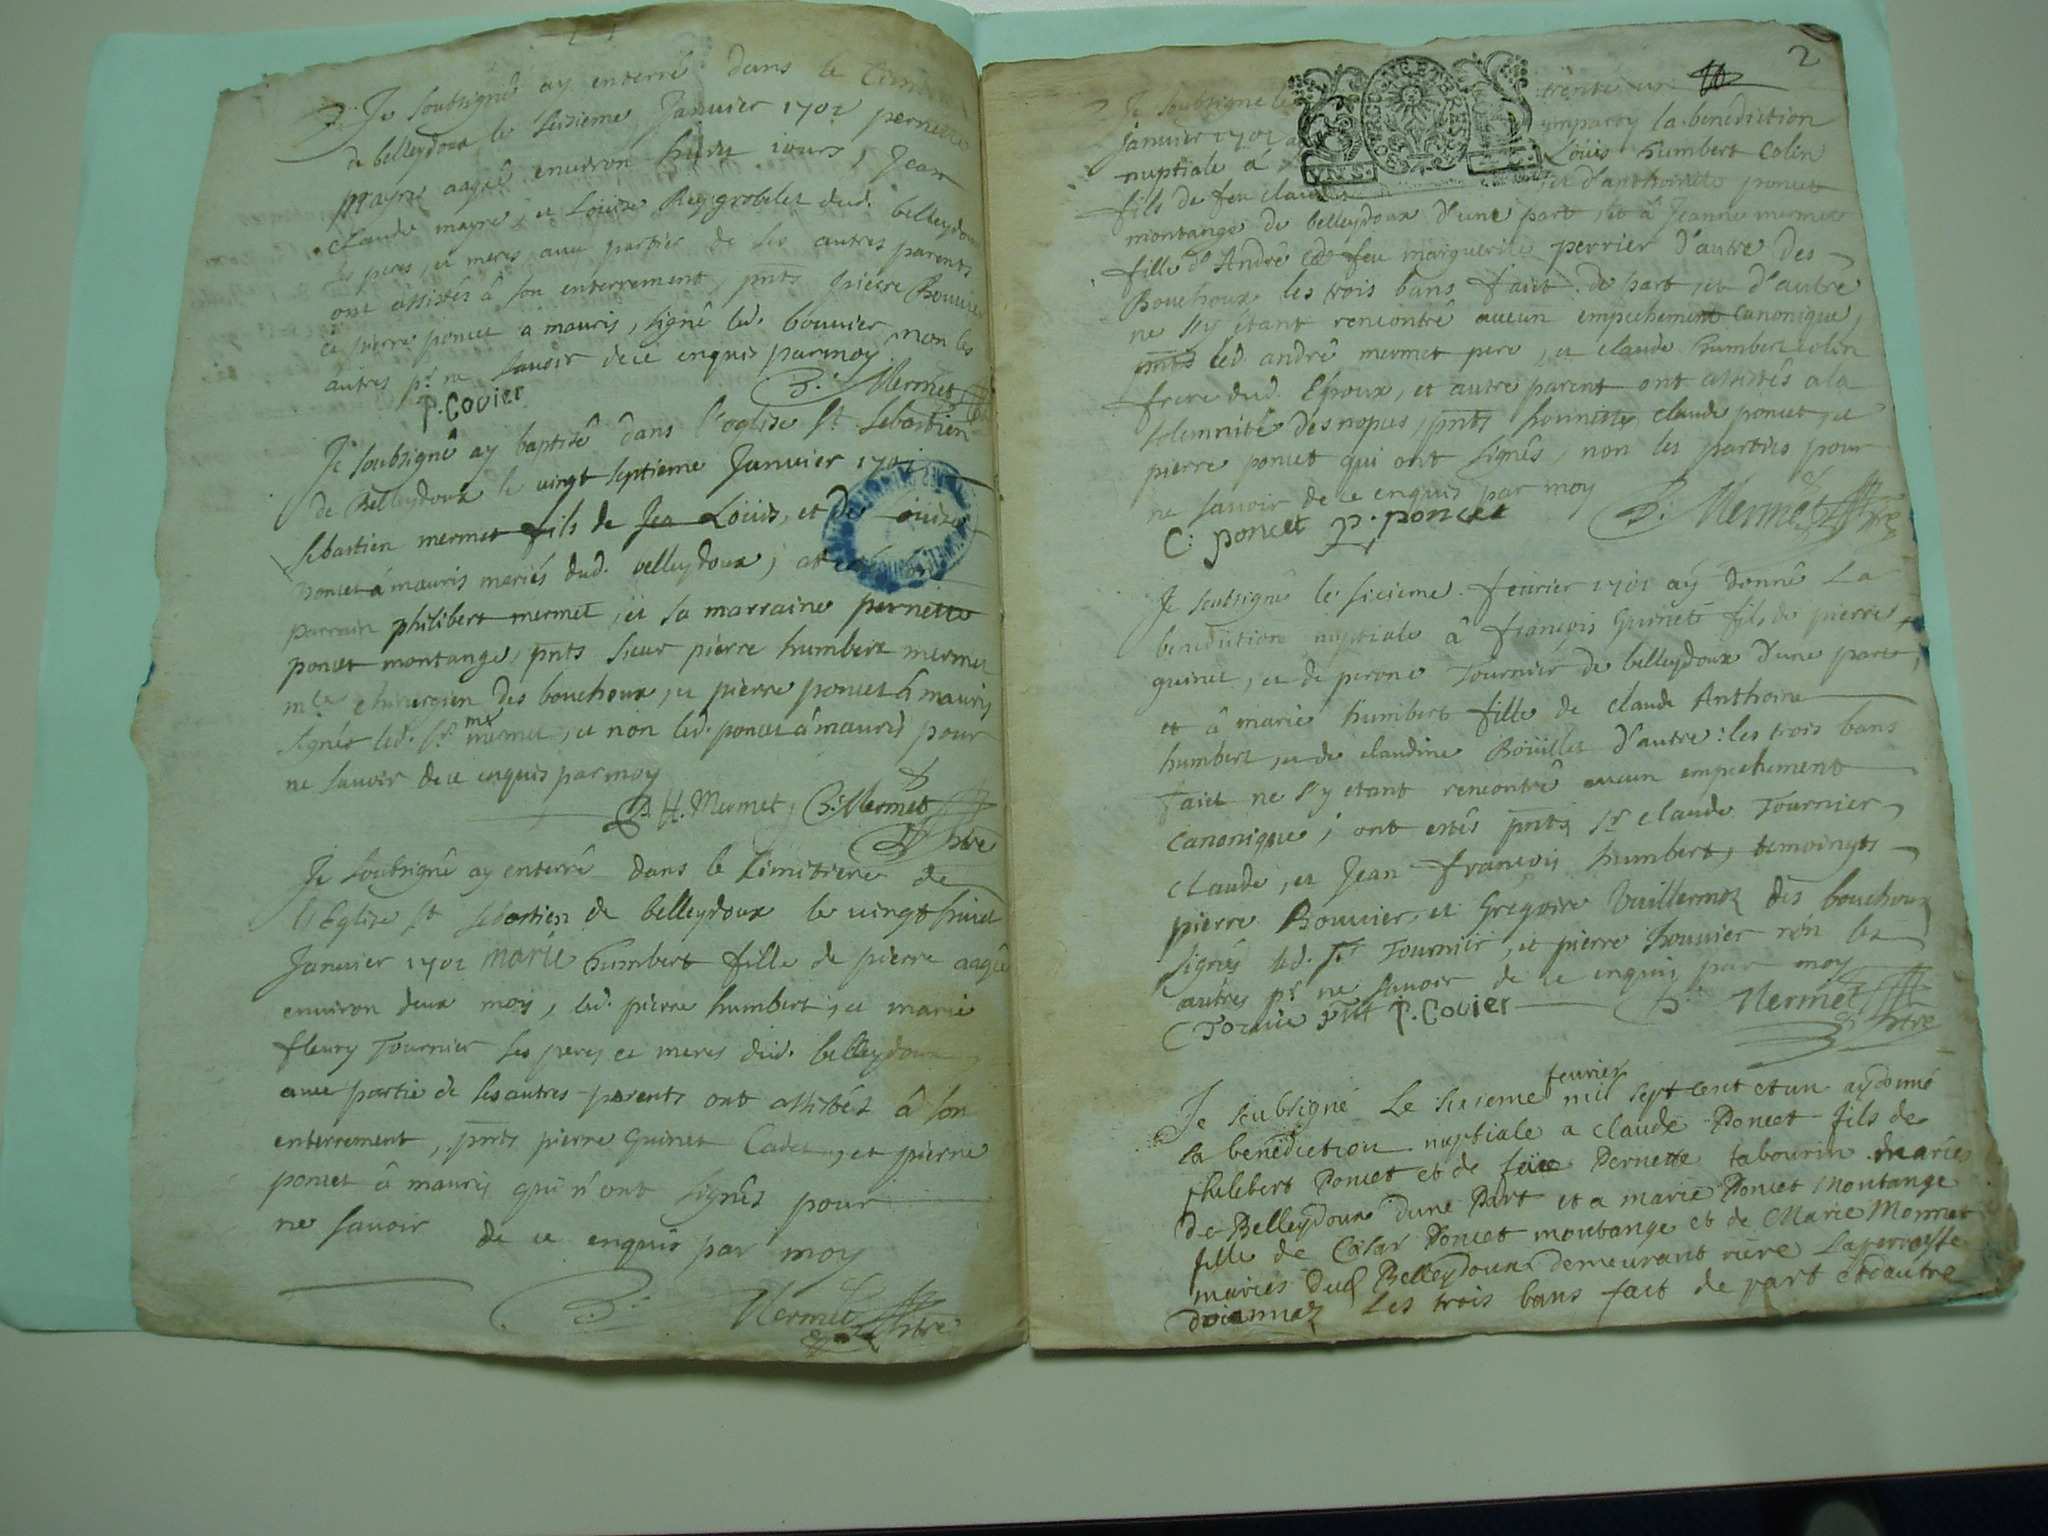 Je soubsigné ay enterré dans le
de belleydoux le seizieme Janvier 1701 pernette
mayre aagée environ huict iours, Jean
claude mayre, et Louise Reygrobelet dud. belleydoux
ses peres, et meres, avec partier de ses autres parents
ont assistés â son enterrement, pnts pierre Bouvier
et pierre poncet a mauris, signé led. bouvier, non les
autres pr. ne savoir de ce enquis par moy
P. Bovier B: Mermet
Je soubsigné ay baptisé dans l'eglise St. Sebastien
de Belleydoux le vingt septieme Janvier 1701
sebastien mermet fils de Jea Loüis, et de Louise
poncet â mauris mariés dud. belleydoux,
parrain philibert mermet, et sa marraine pernette
poncet montange, pnts sieur pierre humbert mermet
mre chirurgien des bouchoux, et pierre poncet â mauris
signés led. Sr. mermet, et non led. poncet â mauris pour
ne savoir de ce enquis par moy
P. H. Mermet B: Mermet
ptre
Je soubsigné ay enterré dans le Cimitiere de
l'Eglise St Sebastien de belleydoux le vingt huict
Janvier 1701 marie humbert fille de pierre aagée
environ deux moys, led. pierre humbert, et marie
fleury Tournier ses peres et meres dud. belleydoux,
avec partie de ses autres parents ont assistés â son
enterrement, pnts pierre Guinet Cadet, et pierre
poncet â mauris qui n'ont signés pour
ne savoir de ce enquis par moy
B: Mermet ptre
2
Je soubsigné le trente un
Janvier 1701 imparty la bénédiction
nuptiale â Loüis humbert Colin
fils de feu claude et d'anthoinette poncet
montange de belleydoux d'une part, et â Jeanne mermet
fille d'André et feu marguerite perrier d'autre des
Bouchoux les trois bans faict de part, et d'autre
ne s'y étant rencontré aucun empechement Canonique,
pnts led. andré mermet pere, et claude humbert colin
frere dud. Epoux, et autre parent ont assistés a la
solemnité des nopces, pnts honnestes claude poncet, et
pierre poncet qui ont signés, non les parties pour
ne savoir de ce enquis par moy
C: poncet P. poncet B: Mermet ptre
Je soubsigné le sixieme fevrier 1701 aÿ donné la
benediction nuptiale â françois Guinet fils de pierre
guinet, et de perone Tournier de belleydoux d'une part,
et â marie humbert fille de claude Anthoine
humbert, et de claudine Boüillet d'autre: les trois bans
faict ne s'y etant rencontré aucun empechement
canonique, ont estés pnts Sr claude Tournier
claude, et Jean françois humbert, temoingts
pierre Bouvier, et Gregoire Vuillermoz des bouchoux
signés led. Sr Tournier, et pierre bouvier non les
autres pr. ne savoir de ce enquis par moy
C Tornie pnt P. Bovier B: Mermet ptre
fevrier
Je soubsigné Le sixieme mil sept cent et un ay donné
la benediction nuptiale a claude Poncet fils de
philebert Poncet et de feüe Pernette tabourin mariés
de Belleydoux dune Part et a marie Poncet Montange
fille de César Poncet montange et de Marie Monnet
mariés dud Belleydoux demeurant riere
doiannaz Les trois bans fait de part et dautre